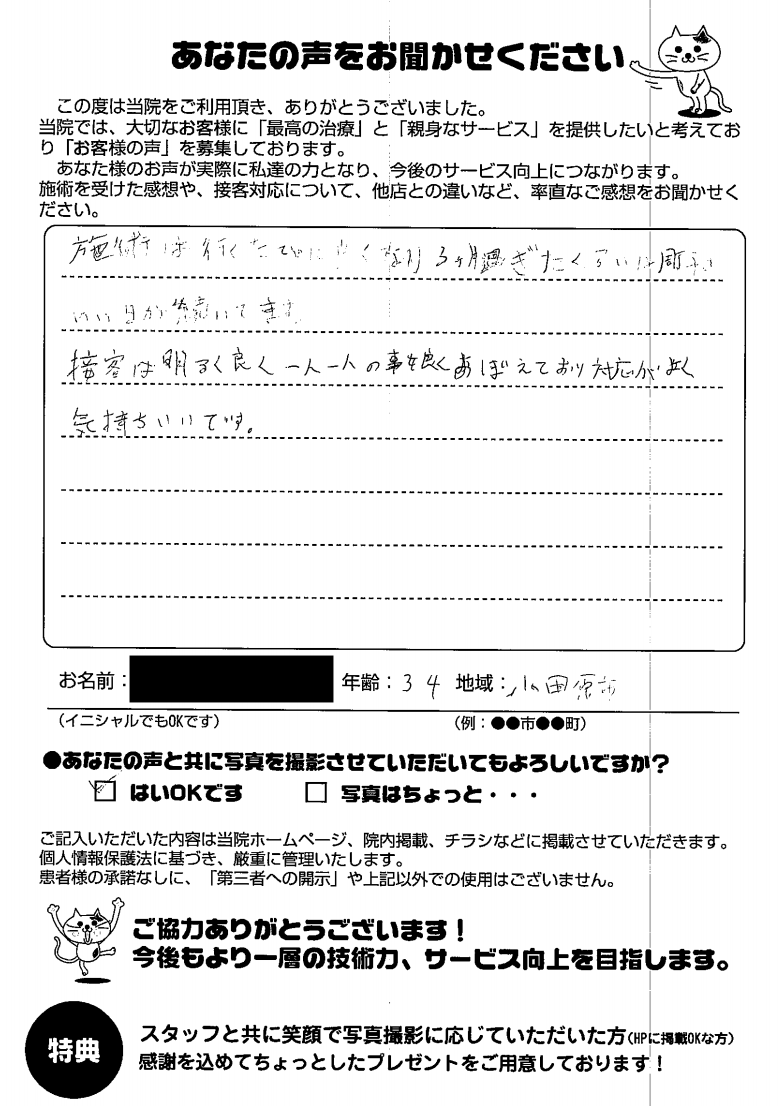 あなたの声をお聞かせください
この度は当院をご利用頂き、ありがとうございました。
当院では、大切なお客様に「最高の治療」と「親身なサービス」を提供したいと考えてお
り「お客様の声」を募集しております。
あなた様のお声が実際に私達の力となり、今後のサービス向上につながります。
施術を受けた感想や、接客対応について、他店との違いなど、率直なご感想をお聞かせく
ださい。
施術は行くたびに良くなり3ヶ月過ぎたくらいは調子
のいい日が続いてます。
接客は明るく良く一人一人の事を良くあぼえており対応がよく
気持ちいいです。
お名前： 年齢：34 地域：小田原市
（イニシャルでもOKです） （例：●●市●●町）
●あなたの声と共に写真を撮影させていただいてもよろしいですか？
はいOKです 写真はちょっと・・・
ご記入いただいた内容は当院ホームページ、院内掲載、チラシなどに掲載させていただきます。
個人情報保護法に基づき、厳重に管理いたします。
患者様の承諾なしに、「第三者への開示」や上記以外での使用はございません。
ご協力ありがとうございます！
今後もより一層の技術力、サービス向上を目指します。
特典
スタッフと共に笑顔で写真撮影に応じていただいた方(HPに掲載OKな方)
感謝を込めてちょっとしたプレゼントをご用意しております！